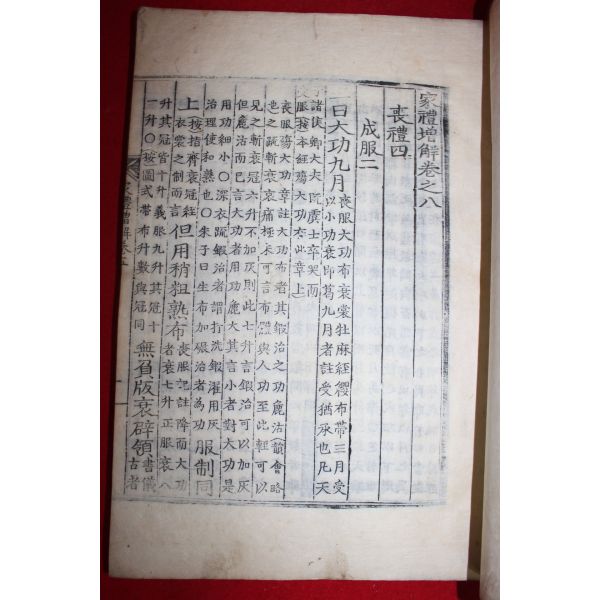 家禮增解卷之八
喪禮四
成服二
一曰大功九月
喪服大功布衰裳牡麻絰纓布帶三月受
以小功衰即葛九月者註受猶承也凡天
子諸侯卿大夫既虞士卒哭而
受服按本經殤大功在此章上
喪服殤大功章註大功布者其鍛治之功麁沽韻會略
也之疏斬衰哀痛極未可言布體與人功至此輕可以
見之斬衰冠六升不加灰則此七升言鍛治可以加灰
但麁沽而已言大功者用功麁大其言小者對大功是
用功細小○深衣疏鍛治者謂打洗鍛濯用灰
治理使和熟也○朱子曰生布加碾治者為功
服制同
上
按指齊衰冠絰
衣裳之制而言
但用稍粗熟布
喪服記註降而大功
者衰七升正服衰八
升其冠皆十升義服九升其冠十
一升○按圖式帶布升數與冠同
無負版衰辟領
書儀
古者